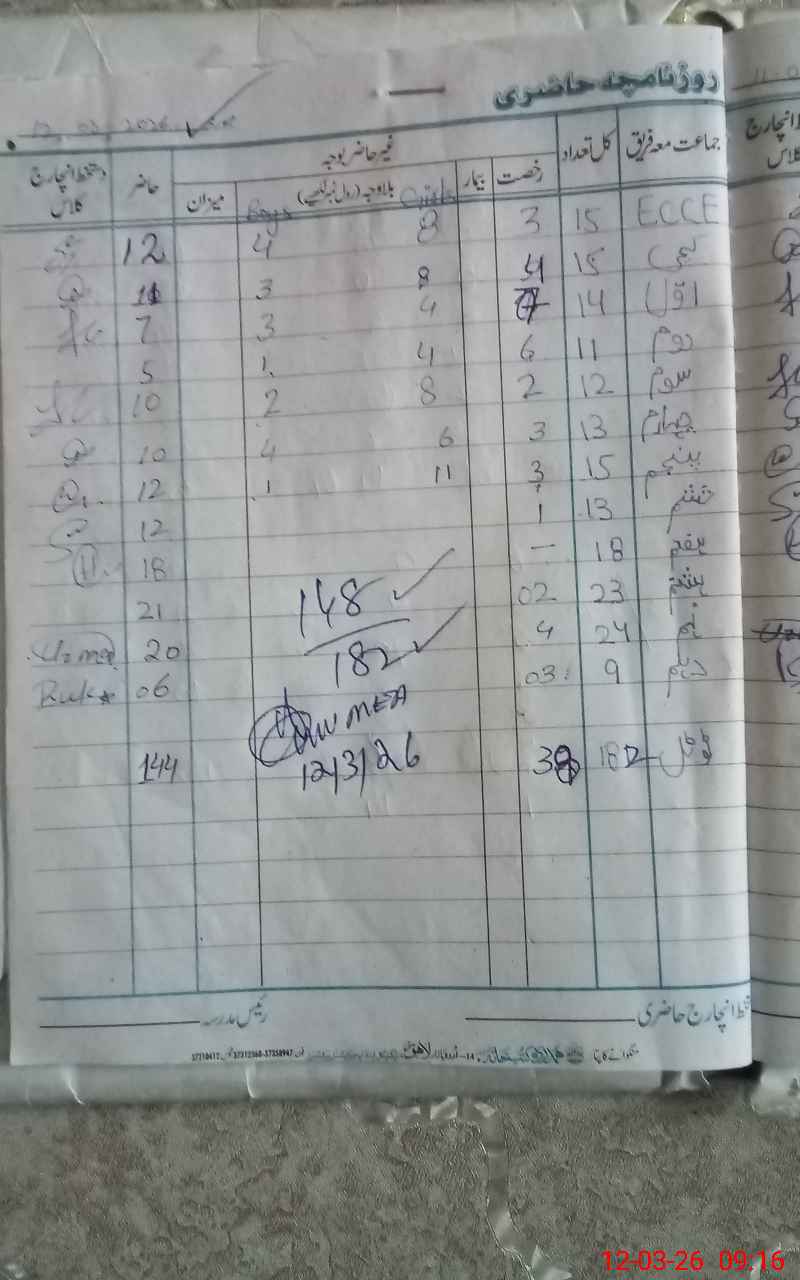 روزنامچہ حاضری
12.03.2026
جماعت معہ فریق کل تعداد غیر حاضر بوجہ حاضر دستخط انچارج کلاس
رخصت بیمار بلاوجہ (رول نمبر لکھیے) میزان
Girls Boys
ECCE 15 3 8 4 12
کچی 15 4 8 3 11
اول 14 7 4 3 7
دوم 11 6 4 1 5
سوم 12 2 8 2 10
چہارم 13 3 6 4 10
پنجم 15 3 11 1 12
ششم 13 1 12
ہفتم 18 – 18
ہشتم 23 02 21
نہم 24 4 20 Uzma
دہم 9 03 06
148
182
MEA
12/3/26
ٹوٹل 182 38 144
دستخط انچارج حاضری رئیس مدرسہ
12-03-26 09:16